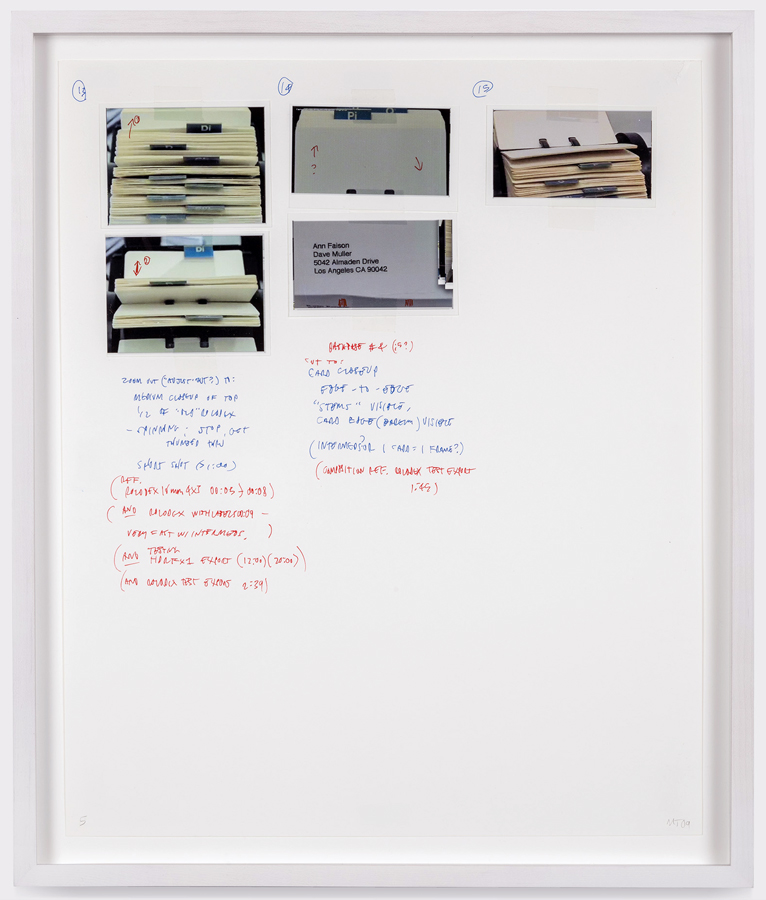 13
14
15
Pi
Pi
?
Pi
Ann Faison
Dave Muller
5042 Almaden Drive
Los Angeles CA 90042
ZOOM OUT ("ADJUST-OUT"?) TO:
MEDIUM CLOSEUP OF TOP
1/2 OF ROLODEX
– SPINNING; STOP, GET
THUMBED THRU
SHORT SHOT
(REF.
ROLODEX 16mm 4x5 00:03 → 00:08)
(AND ROLODEX WITH LABELS 00:09 –
VERY FAST W/ INTERMEDS. )
(AND TESTING
EXPORT (12:00) (20:00))
(AND ROLODEX TEST EXPORT 2:39)
DATABASE #4
CUT TO:
CARD CLOSEUP
EDGE-TO-EDGE
"STEMS" VISIBLE,
CARD EDGE VISIBLE
(INTERMEDS OR 1 CARD = 1 FRAME?)
(COMPOSITION REF. ROLODEX TEST EXPORT
1:45)
5